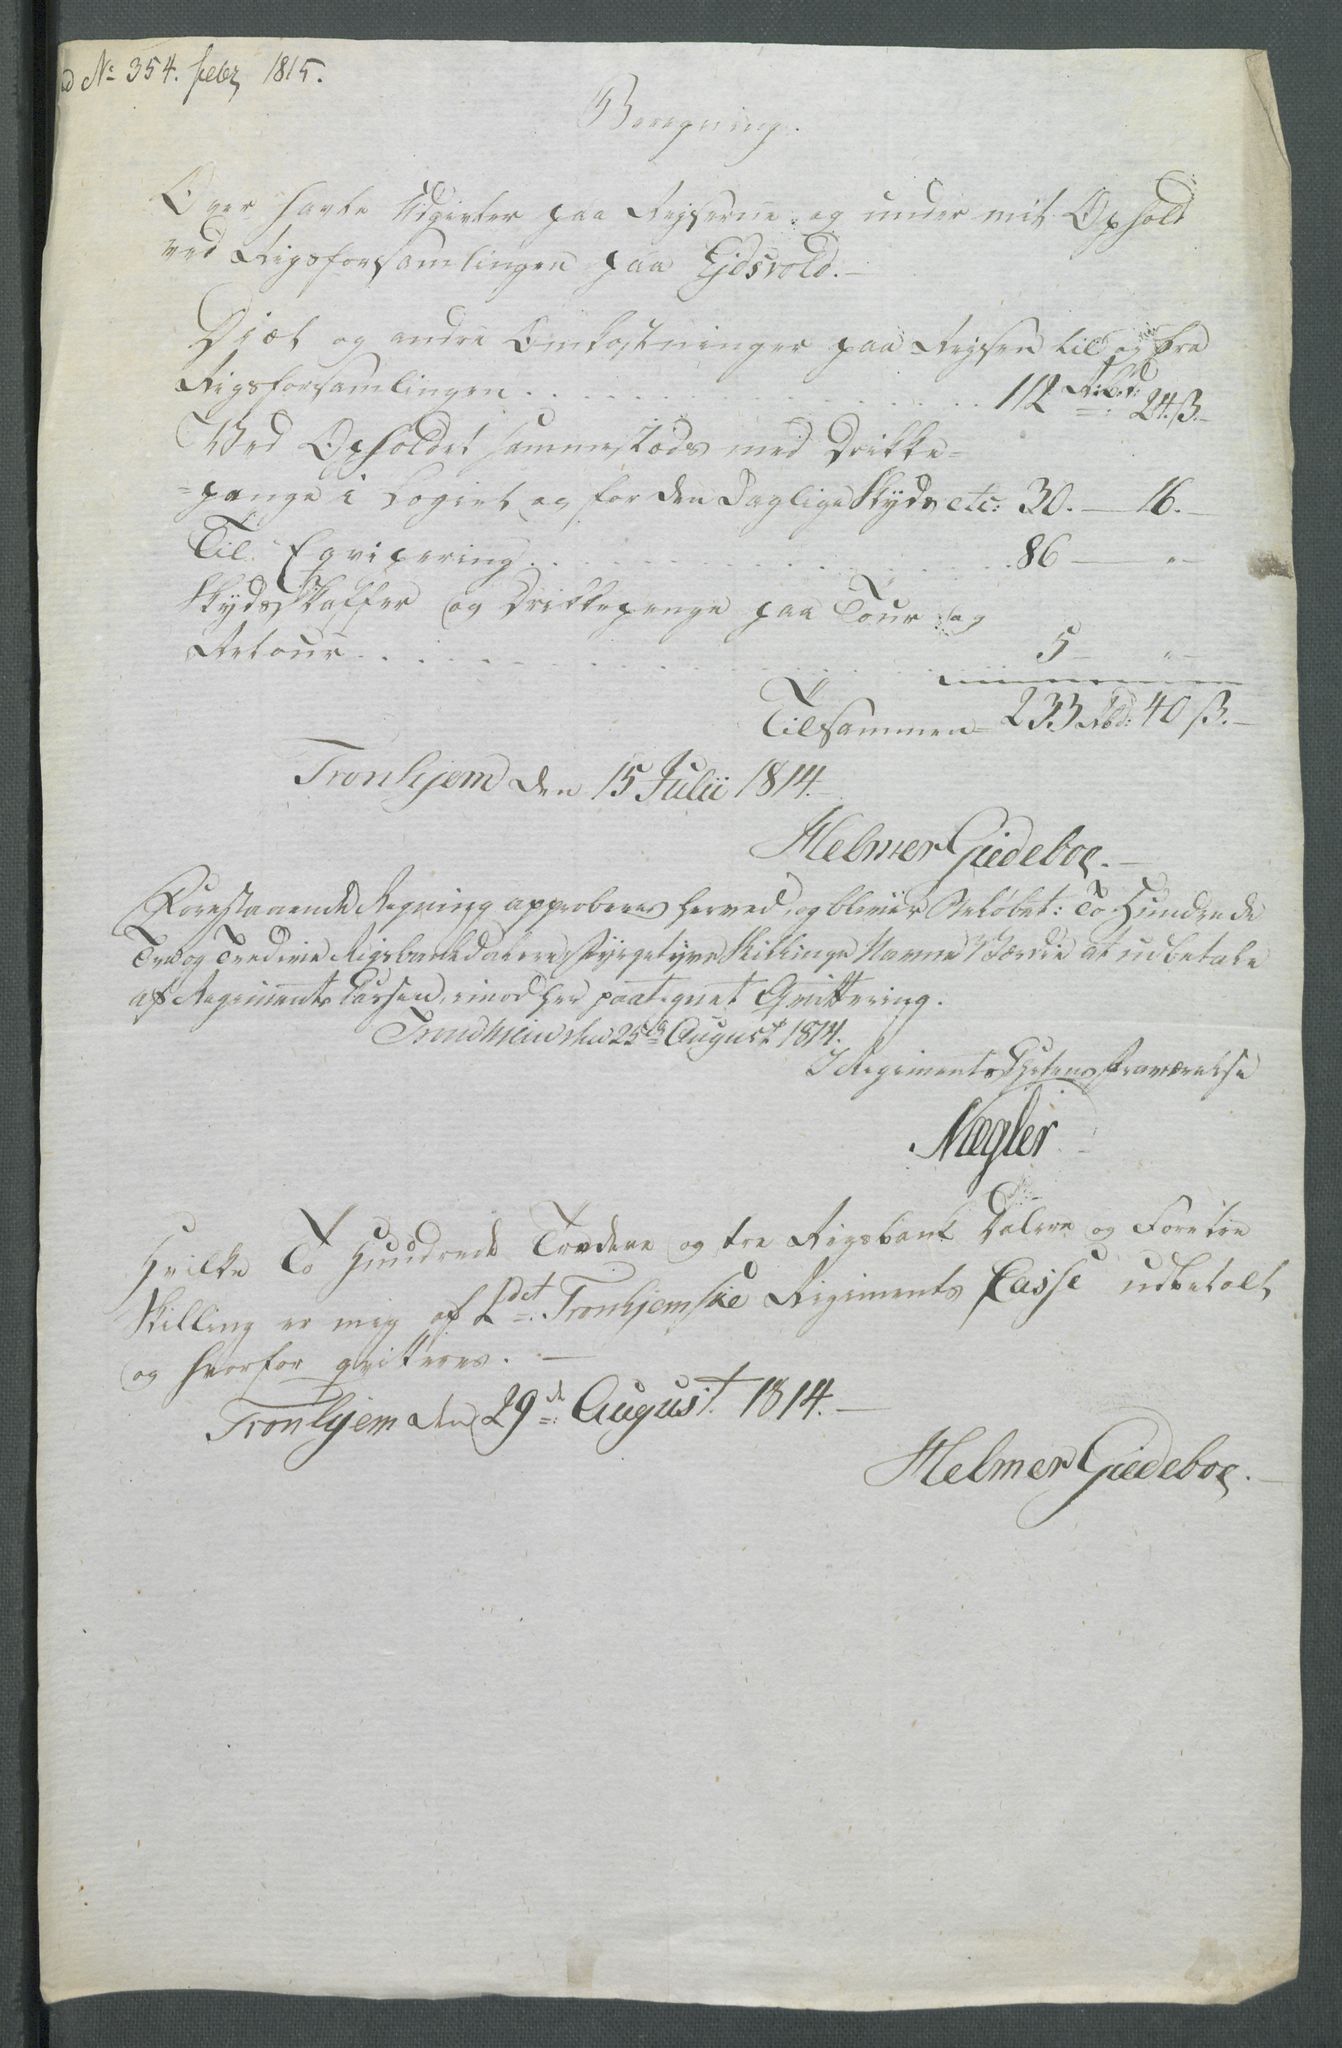 ad No 354. febr 1815.
Beregning.
Over havte Udgivter paa Rejserne og under mit Ophold
ved Rigsforsamlingen paa Ejdsvold.—
Diæt og andre Omkostninger paa Rejsen til og fra
Rigsforsamlingen . . . . . . 112 Rbd: 24 ß.—
Ved Opholdet sammestæds med Drikke=
=penge i Logiet og for den Daglige Skyds etc: 30. — 16.—
Til Eqvipering . . . . . . 86 — " —
Skydsskaffer og Drikkepenge paa Tour og
Retour . . . . . . 5 — " —
Tilsammen 233 Rbd: 40 ß.—
Tronhjem den 15 Julii 1814.
Helmer Giedeboe.—
Forestaaende Regning approberes herved, og bliver Beløbet: To Hundrede
Tre og Tredivie Rigsbankdalere Fyrgetyve Skillinge Navne Værdie at udbetale
af Regiments Cassen, imod her paategnet Qvittering.
Trondhiem den 25de August 1814.
I Regiments Chefens Fraværelse
Nægler
Hvilke To Hundrede Tredeve og tre Rigsbank Dalere og Foretive
Skilling er mig af 2det Tronhjemske Regiments Casse udbetalt
og hvorfor qvitteres. —
Tronhjem den 29de August. 1814.—
Helmer Giedeboe.—